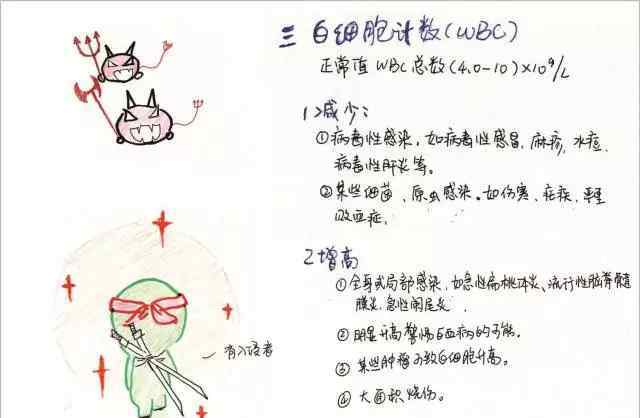 三 白细胞计数(WBC)
正常值 WBC总数(4.0-10)×10⁹/L
1)减少:
①病毒性感染,如病毒性感冒、麻疹、水痘、
病毒性肝炎等。
②某些细菌、原虫感染。如伤寒、疟疾、黑
症。
2增高
①全身或局部感染,如急性扁桃体炎、流行性脑脊髓
膜炎、急性阑尾炎
②明显升高警惕白血病的可能。
③某些肿瘤可致白细胞升高。
④大面积烧伤。